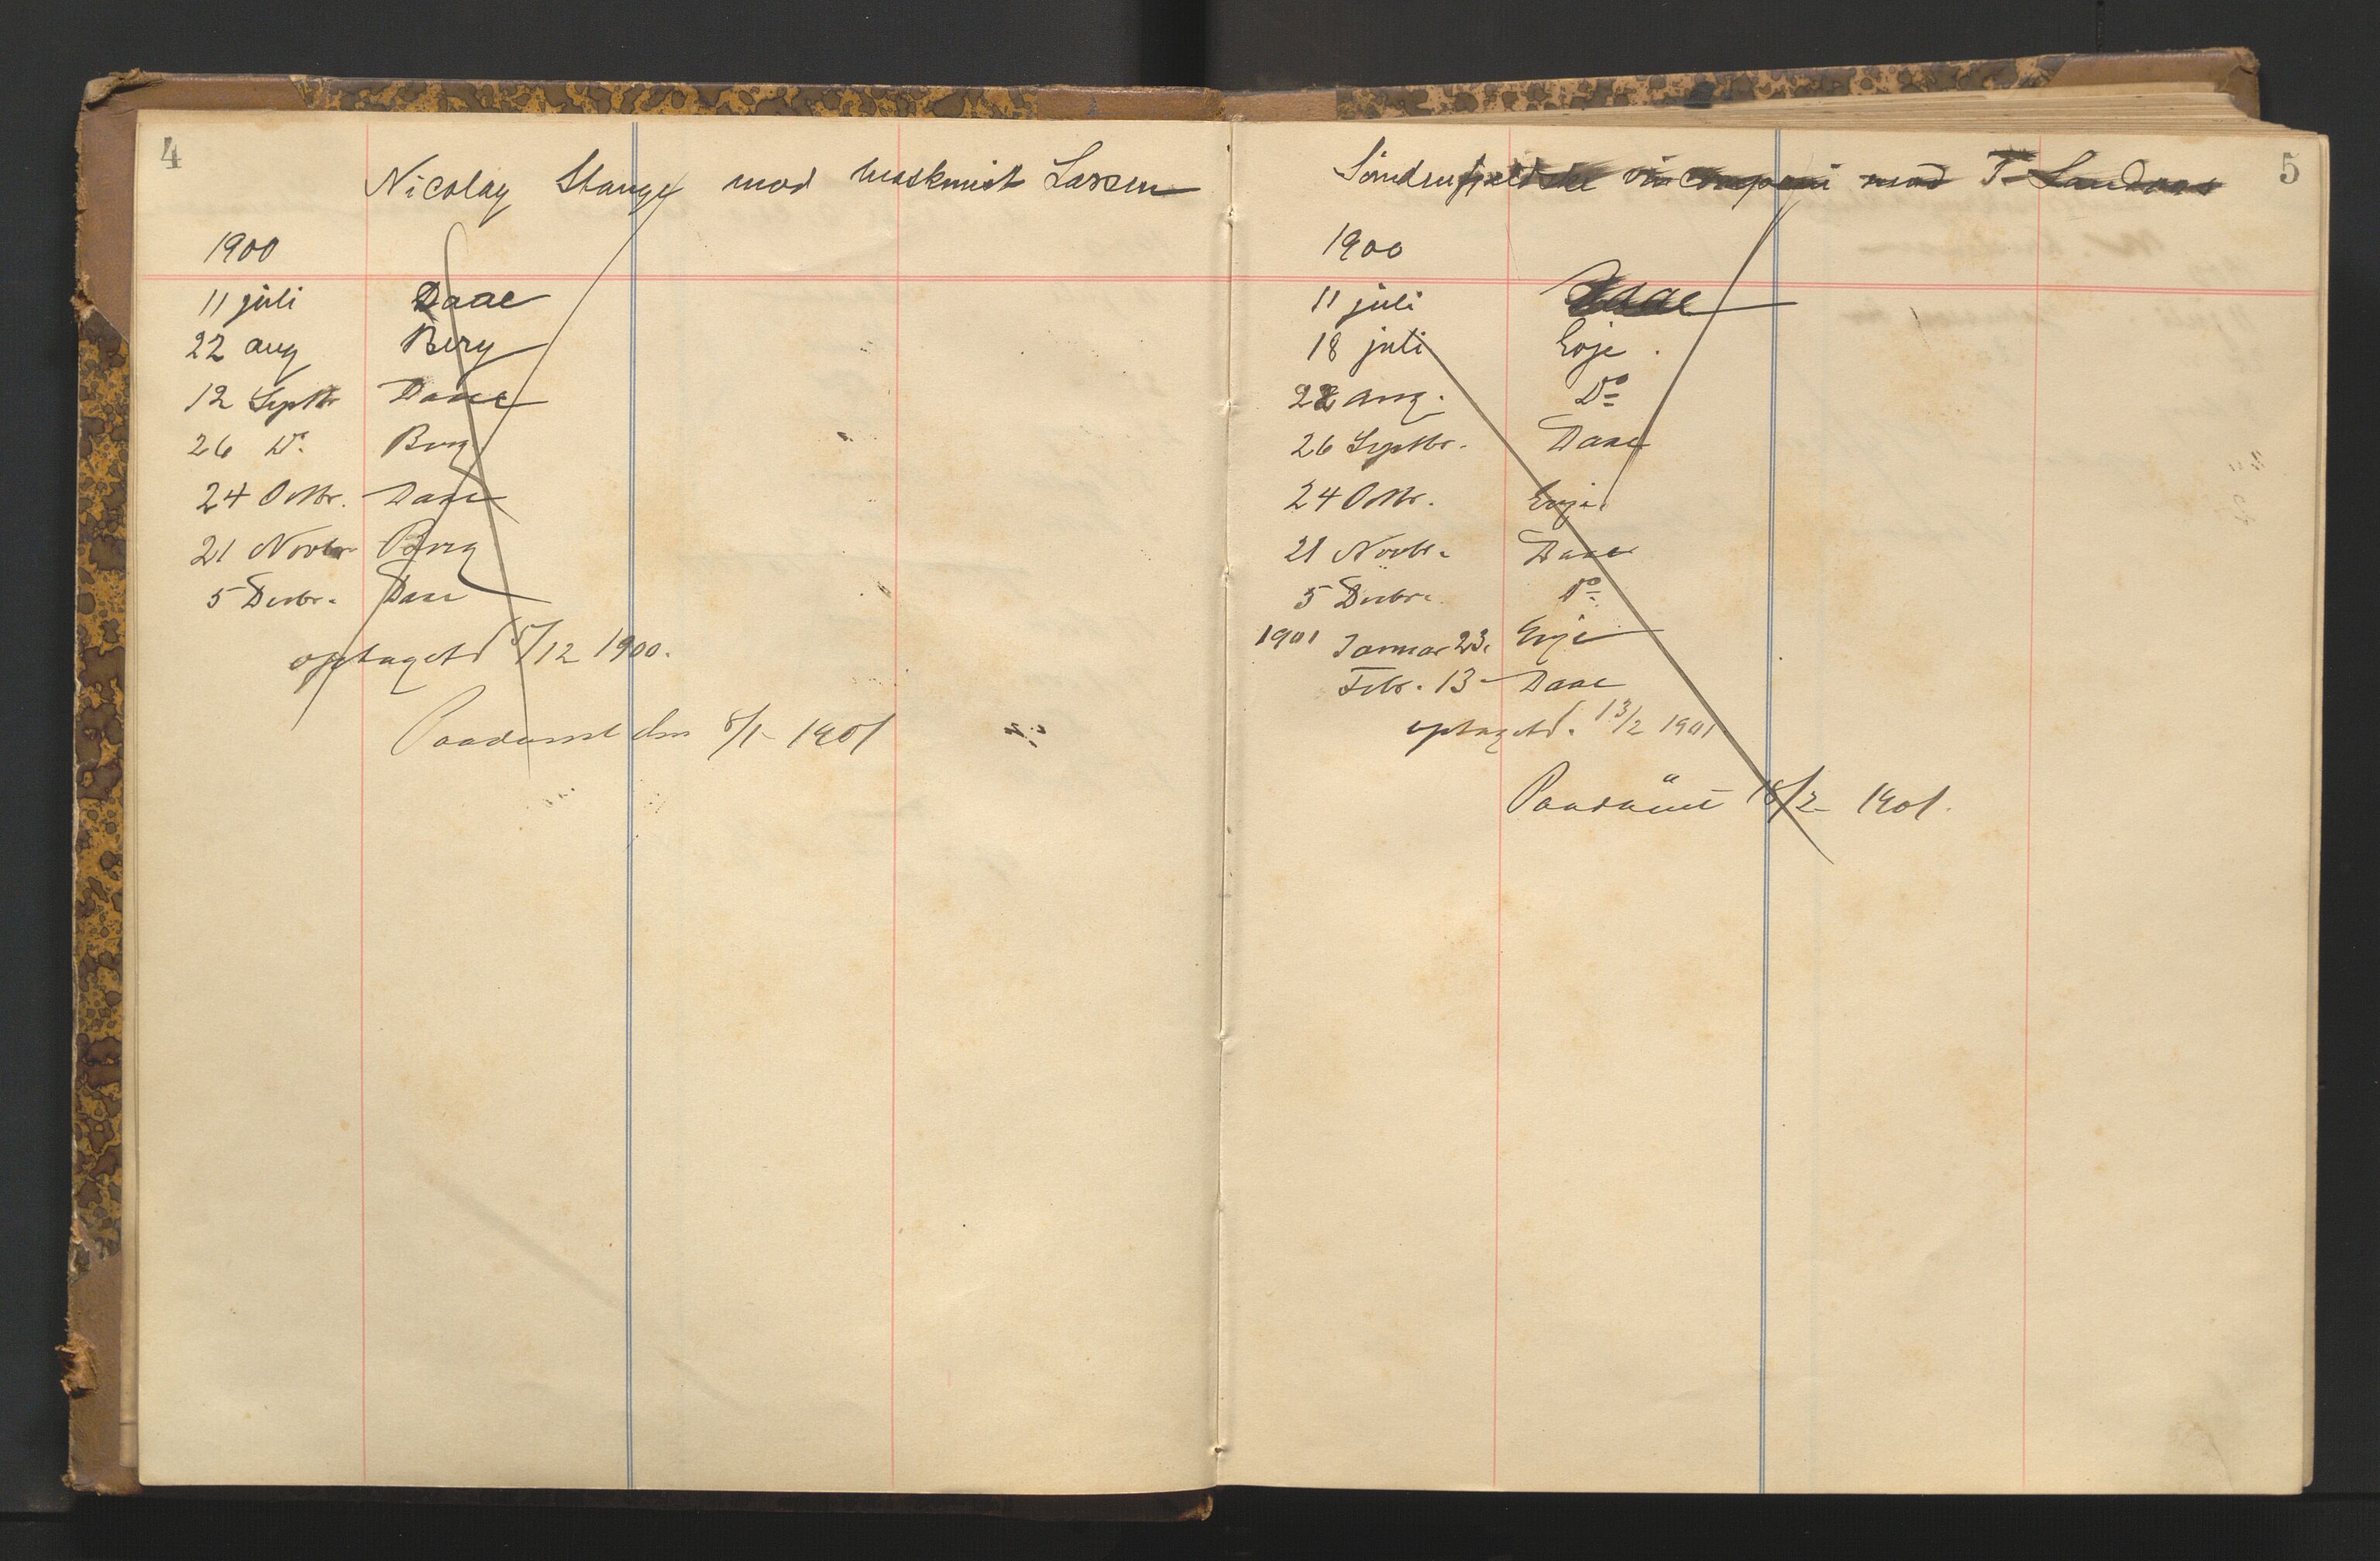 4
Nicolay Stange mod maskinist Larsen
1900
11 juli Daae
22 aug Berg
12 Septbr Daae
26 Do. Berg
24 Octbr. Daae
21 Novbr Berg
5 Decbr. Daae
optaget d 5/12 1900.
Paadømt den 8/1 - 1901
5
Søndenfjeldske vincompani mod T. Sandaas
1900
11 juli Daae
18 juli Evje.
22 aug. Do
26 Septbr. Daae
24 Octbr. Evje.
21 Novbr. Daae
5 Decbr. Do
1901 Januar 23. Evje
Febr. 13 Daae
optaget d. 13/2 1901
Paadømt 18/2 - 1901.